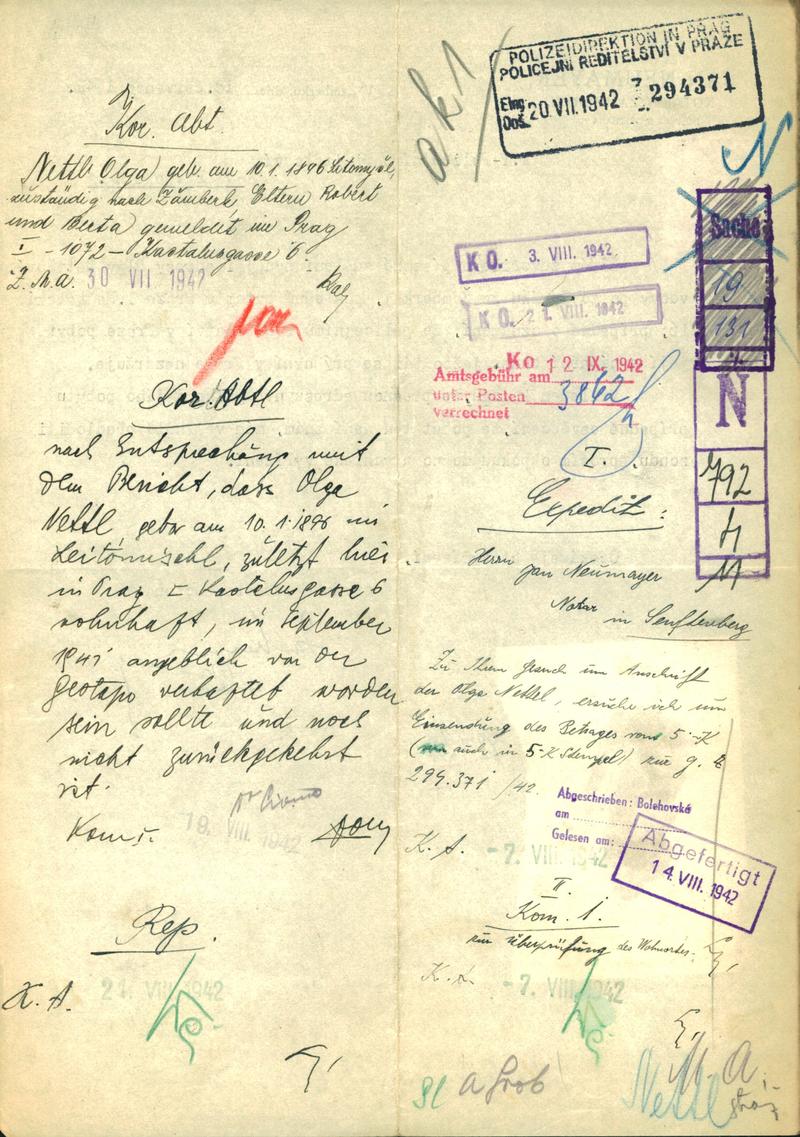 Kor. Abt.
Nettl Olga geb. am 10.1.1896 Litomyšl,
zuständig nach Žamberk Eltern Robert
und Berta gemeldet in Prag
I - 1072 - Kastalusgasse 6
Z.M.A. 30 VII 1942
Kor. Abtl
nach Entsprechung mit
dem Bericht, dass Olga
Nettl gebor am 10.1.1896 in
Leitomischl, zuletzt hier
in Prag I Kastelusgasse 6
wohnhaft, im September
1941 angeblich von der
Gestapo verhaftet worden
sein sollte und noch
nicht zurückgekehrt
ist.
19. VIII 1942
Kom I.
Rep.
K. A. 21. VIII 1942
ak1
POLIZEIDIREKTION IN PRAG
POLICEJNÍ ŘEDITELSTVÍ V PRAZE
Eing. Doš. 20 VII.1942 294371
N
Sache
19
131
N
792
4
11
K O. 3. VIII. 1942
K O. 21. VIII. 1942
Ko 12 IX. 1942
Amtsgebühr am
unter Posten 3862
verrechnet
I.
Expedit:
Herrn Jan Neumayer
Notar
in Senftenberg
Zu Ihrem Ansuch um Anschrift
der Olga Nettl, ersuche ich um
Einsendung des Betrages von 5.-K
(auch in 5-K Stempel) zur g. Z
294.371 /42.
Abgeschrieben: Bolehovská
am
Gelesen am:
Abgefertigt
14. VIII. 1942
K. A. -7. VIII 1942
II.
Kom. I.
zur Überprüfung des Wohnortes.
K. A. -7. VIII 1942
Nettl
M. A.